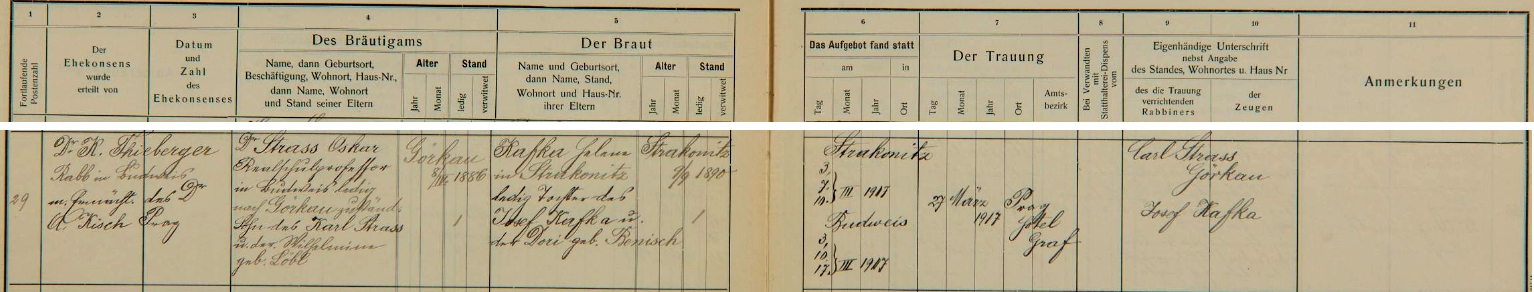 1 2 3 4 5 6 7 8 9 10 11
Fortlaufende Postenzahl
Der
Ehekonsens
wurde
erteilt von
Datum
und
Zahl
des
Ehekonsenses
Des Bräutigams
Name, dann Geburtsort,
Beschäftigung, Wohnort, Haus-Nr.,
dann Name, Wohnort
und Stand seiner Eltern
Alter
Jahr
Monat
Stand
ledig
verwitwet
Der Braut
Name und Geburtsort,
dann Name, Stand,
Wohnort und Haus-Nr.
ihrer Eltern
Alter
Jahr
Monat
Stand
ledig
verwitwet
Das Aufgebot fand statt
am
in
Tag
Monat
Jahr
Ort
Der Trauung
Tag
Monat
Jahr
Ort
Amts-
bezirk
Bei Verwandten
mit
Statthalterei-Dispens
vom
Eigenhändige Unterschrift
nebst Angabe
des Standes, Wohnortes u. Haus Nr
des die Trauung
verrichtenden
Rabbiners
der
Zeugen
Anmerkungen
29
Dr. K. Thieberger
Rabb in Budweis
m. Ermächt. des Dr
A. Kisch Prag
Dr Strass Oskar
Realschulprofessor
in Budweis ledig
nach Görkau zuständ.
Sohn des Karl Strass
u. der Wilhelmine
geb. Löbl
Görkau
1886
1
Kafka Helene
in Strakonitz
ledig Tochter des
Josef Kafka u.
der Dori geb. Benisch
Strakonitz
9/9 1890
1
Strakonitz
3.
7. III 1917
10.
Budweis
3,
10. III 1917
17.
27 März 1917
Prag
Hôtel
Graf
Carl Strass
Görkau
Josef Kafka